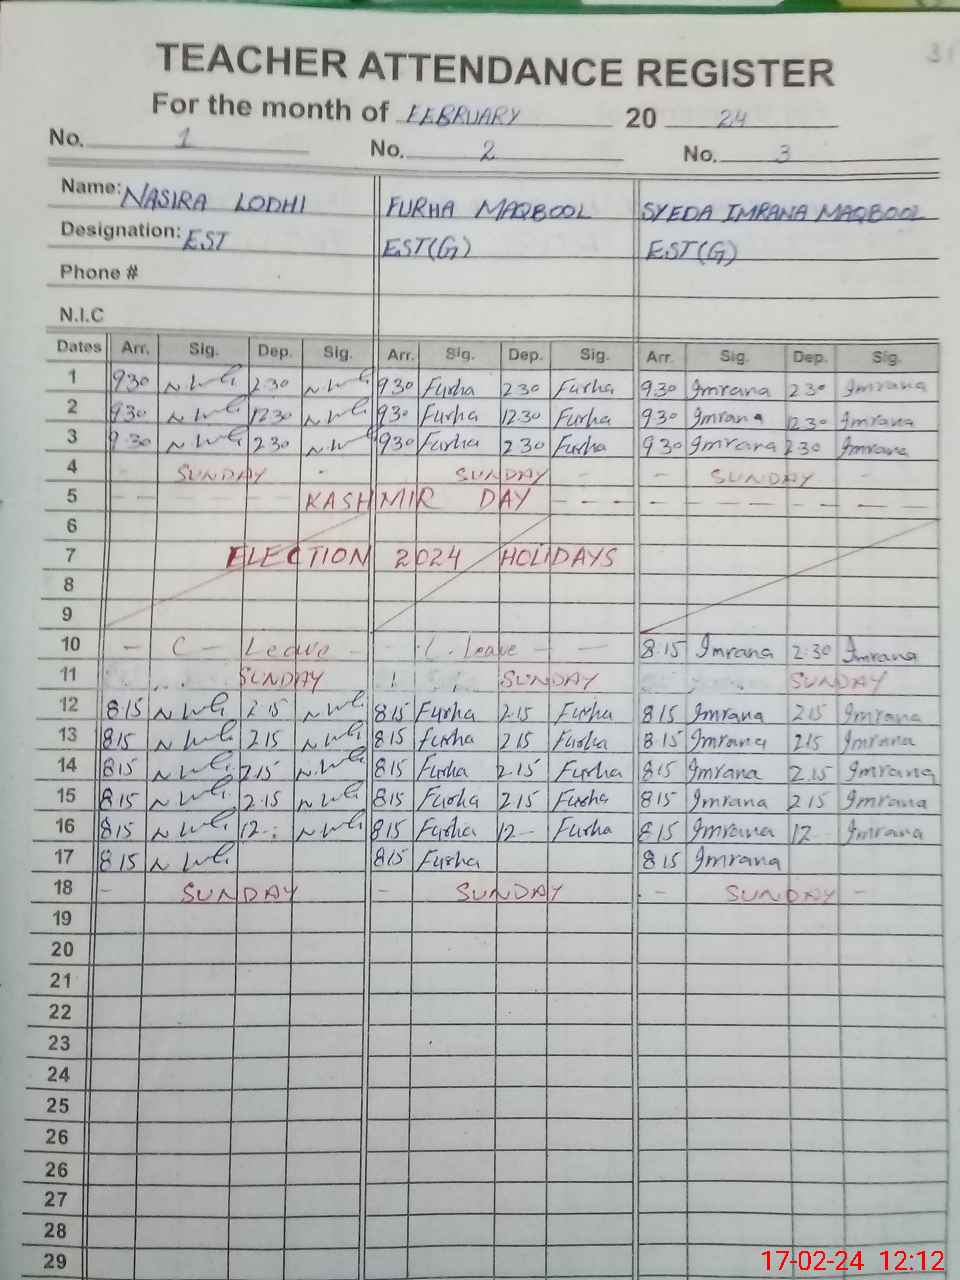 31
TEACHER ATTENDANCE REGISTER
For the month of FEBRUARY 20 24
No. 1 No. 2 No. 3
Name: NASIRA LODHI FURHA MAQBOOL SYEDA IMRANA MAQBOOL
Designation: EST EST(G) EST(G)
Phone #
N.I.C
Dates Arr. Sig. Dep. Sig. Arr. Sig. Dep. Sig. Arr. Sig. Dep. Sig.
1 9 30 2 30 9 30 Furha 2 30 Furha 9 30 Imrana 2 30 Imrana
2 9 30 12 30 9 30 Furha 12 30 Furha 9 30 Imrana 12 30 Imrana
3 9 30 2 30 9 30 Furha 2 30 Furha 9 30 Imrana 2 30 Imrana
4 - SUNDAY - SUNDAY - - SUNDAY -
5 - - - - KASHMIR DAY - - - - - - -
6
7 ELECTION 2024 HOLIDAYS
8
9
10 - C - Leave - C. leave - - 8:15 Imrana 2:30 Imrana
11 SUNDAY SUNDAY SUNDAY
12 8:15 2:15 8 15 Furha 2 15 Furha 8 15 Imrana 2 15 Imrana
13 8 15 2 15 8 15 Furha 2 15 Furha 8 15 Imrana 2 15 Imrana
14 8 15 2.15 8 15 Furha 2.15 Furha 8 15 Imrana 2 15 Imrana
15 8 15 2.15 8 15 Furha 2 15 Furha 8 15 Imrana 2 15 Imrana
16 8 15 12 - 8 15 Furha 12 - Furha 8 15 Imrana 12 Imrana
17 8 15 8 15 Furha 8 15 Imrana
18 - SUNDAY - SUNDAY - SUNDAY -
19
20
21
22
23
24
25
26
26
27
28
29
17-02-24 12:12